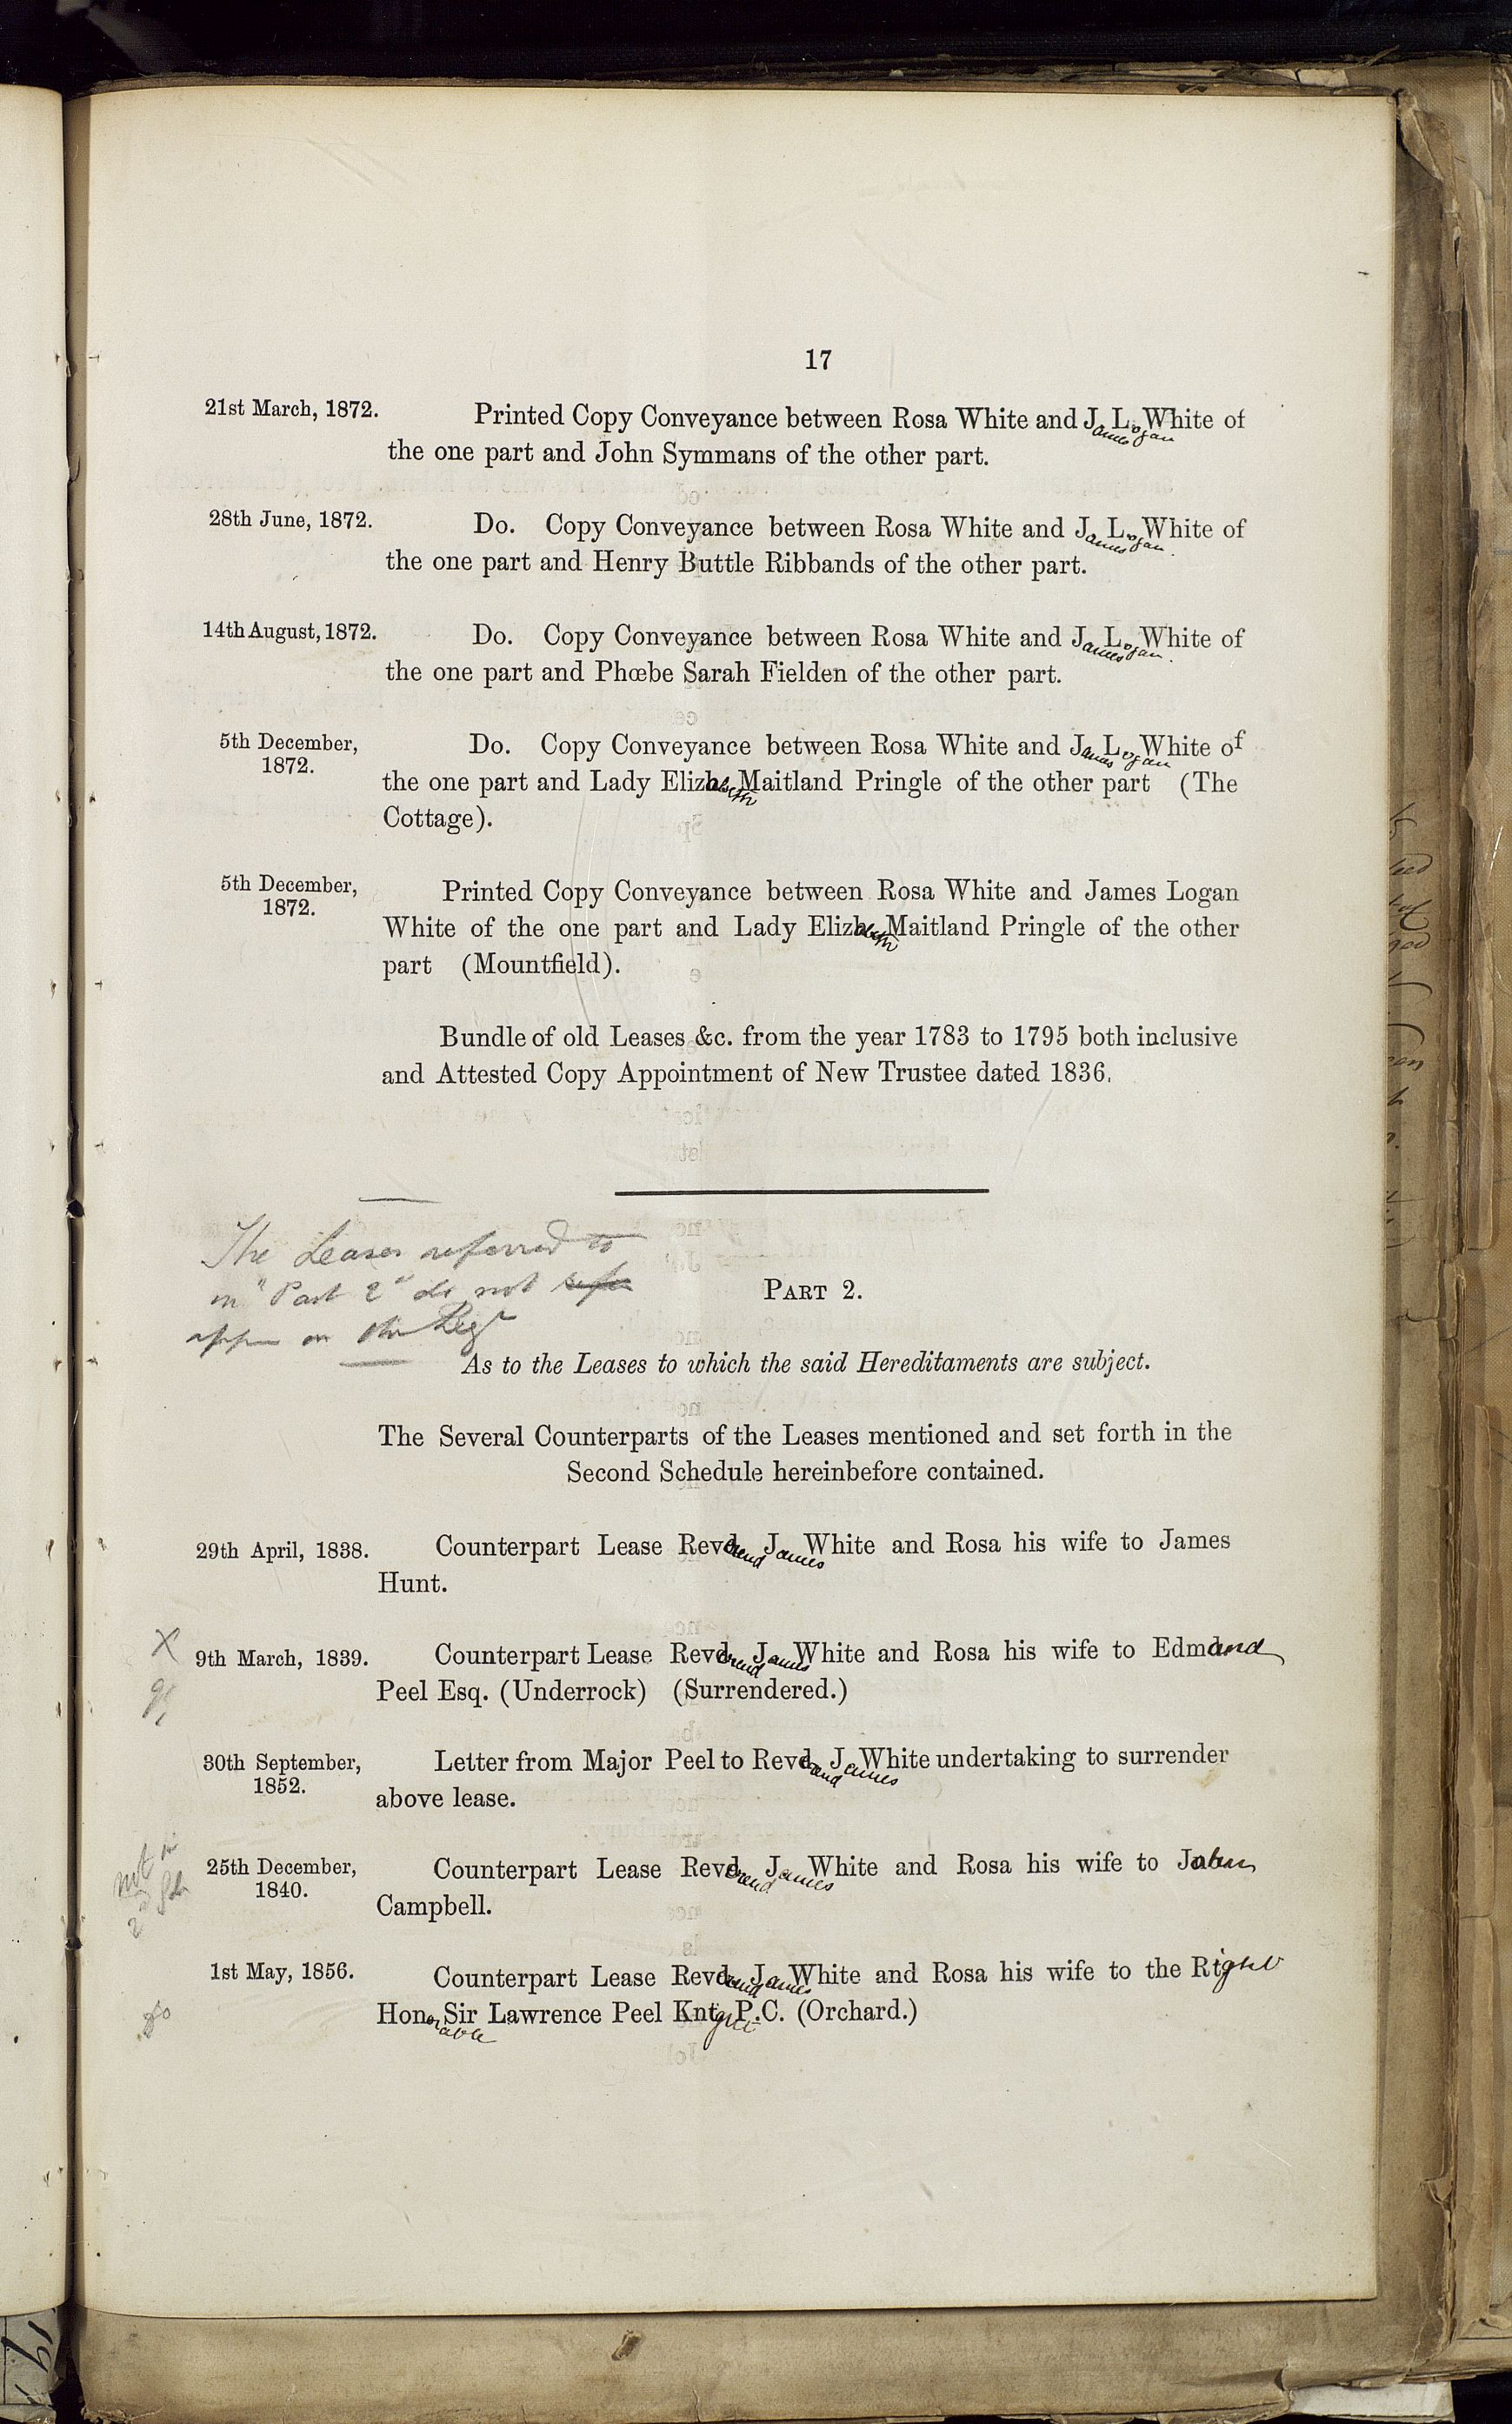 17
21st March, 1872. Printed Copy Conveyance between Rosa White and James Logan White of
the one part and John Symmans of the other part.
28th June, 1872. Do. Copy Conveyance between Rosa White and James Logan White of
the one part and Henry Buttle Ribbands of the other part.
14th August, 1872. Do. Copy Conveyance between Rosa White and James Logan White of
the one part and Phœbe Sarah Fielden of the other part.
5th December, Do. Copy Conveyance between Rosa White and James Logan White of
1872.
the one part and Lady Elizabeth Maitland Pringle of the other part (The
Cottage).
5th December, Printed Copy Conveyance between Rosa White and James Logan
1872.
White of the one part and Lady Elizabeth Maitland Pringle of the other
part (Mountfield).
Bundle of old Leases &c. from the year 1783 to 1795 both inclusive
and Attested Copy Appointment of New Trustee dated 1836.
The Leases referred to
in "Part 2" do not
appear on the Regr
PART 2.
As to the Leases to which the said Hereditaments are subject.
The Several Counterparts of the Leases mentioned and set forth in the
Second Schedule hereinbefore contained.
29th April, 1838. Counterpart Lease Reverend James White and Rosa his wife to James
Hunt.
X 9th March, 1839. Counterpart Lease Reverend James White and Rosa his wife to Edmund
Peel Esq. (Underrock) (Surrendered.)
30th September, Letter from Major Peel to Reverend James White undertaking to surrender
1852.
above lease.
not in
25th December, Counterpart Lease Reverend James White and Rosa his wife to John
1840.
Campbell.
1st May, 1856. Counterpart Lease Reverend James White and Rosa his wife to the Right
Honorable Sir Lawrence Peel Knight P.C. (Orchard.)
do